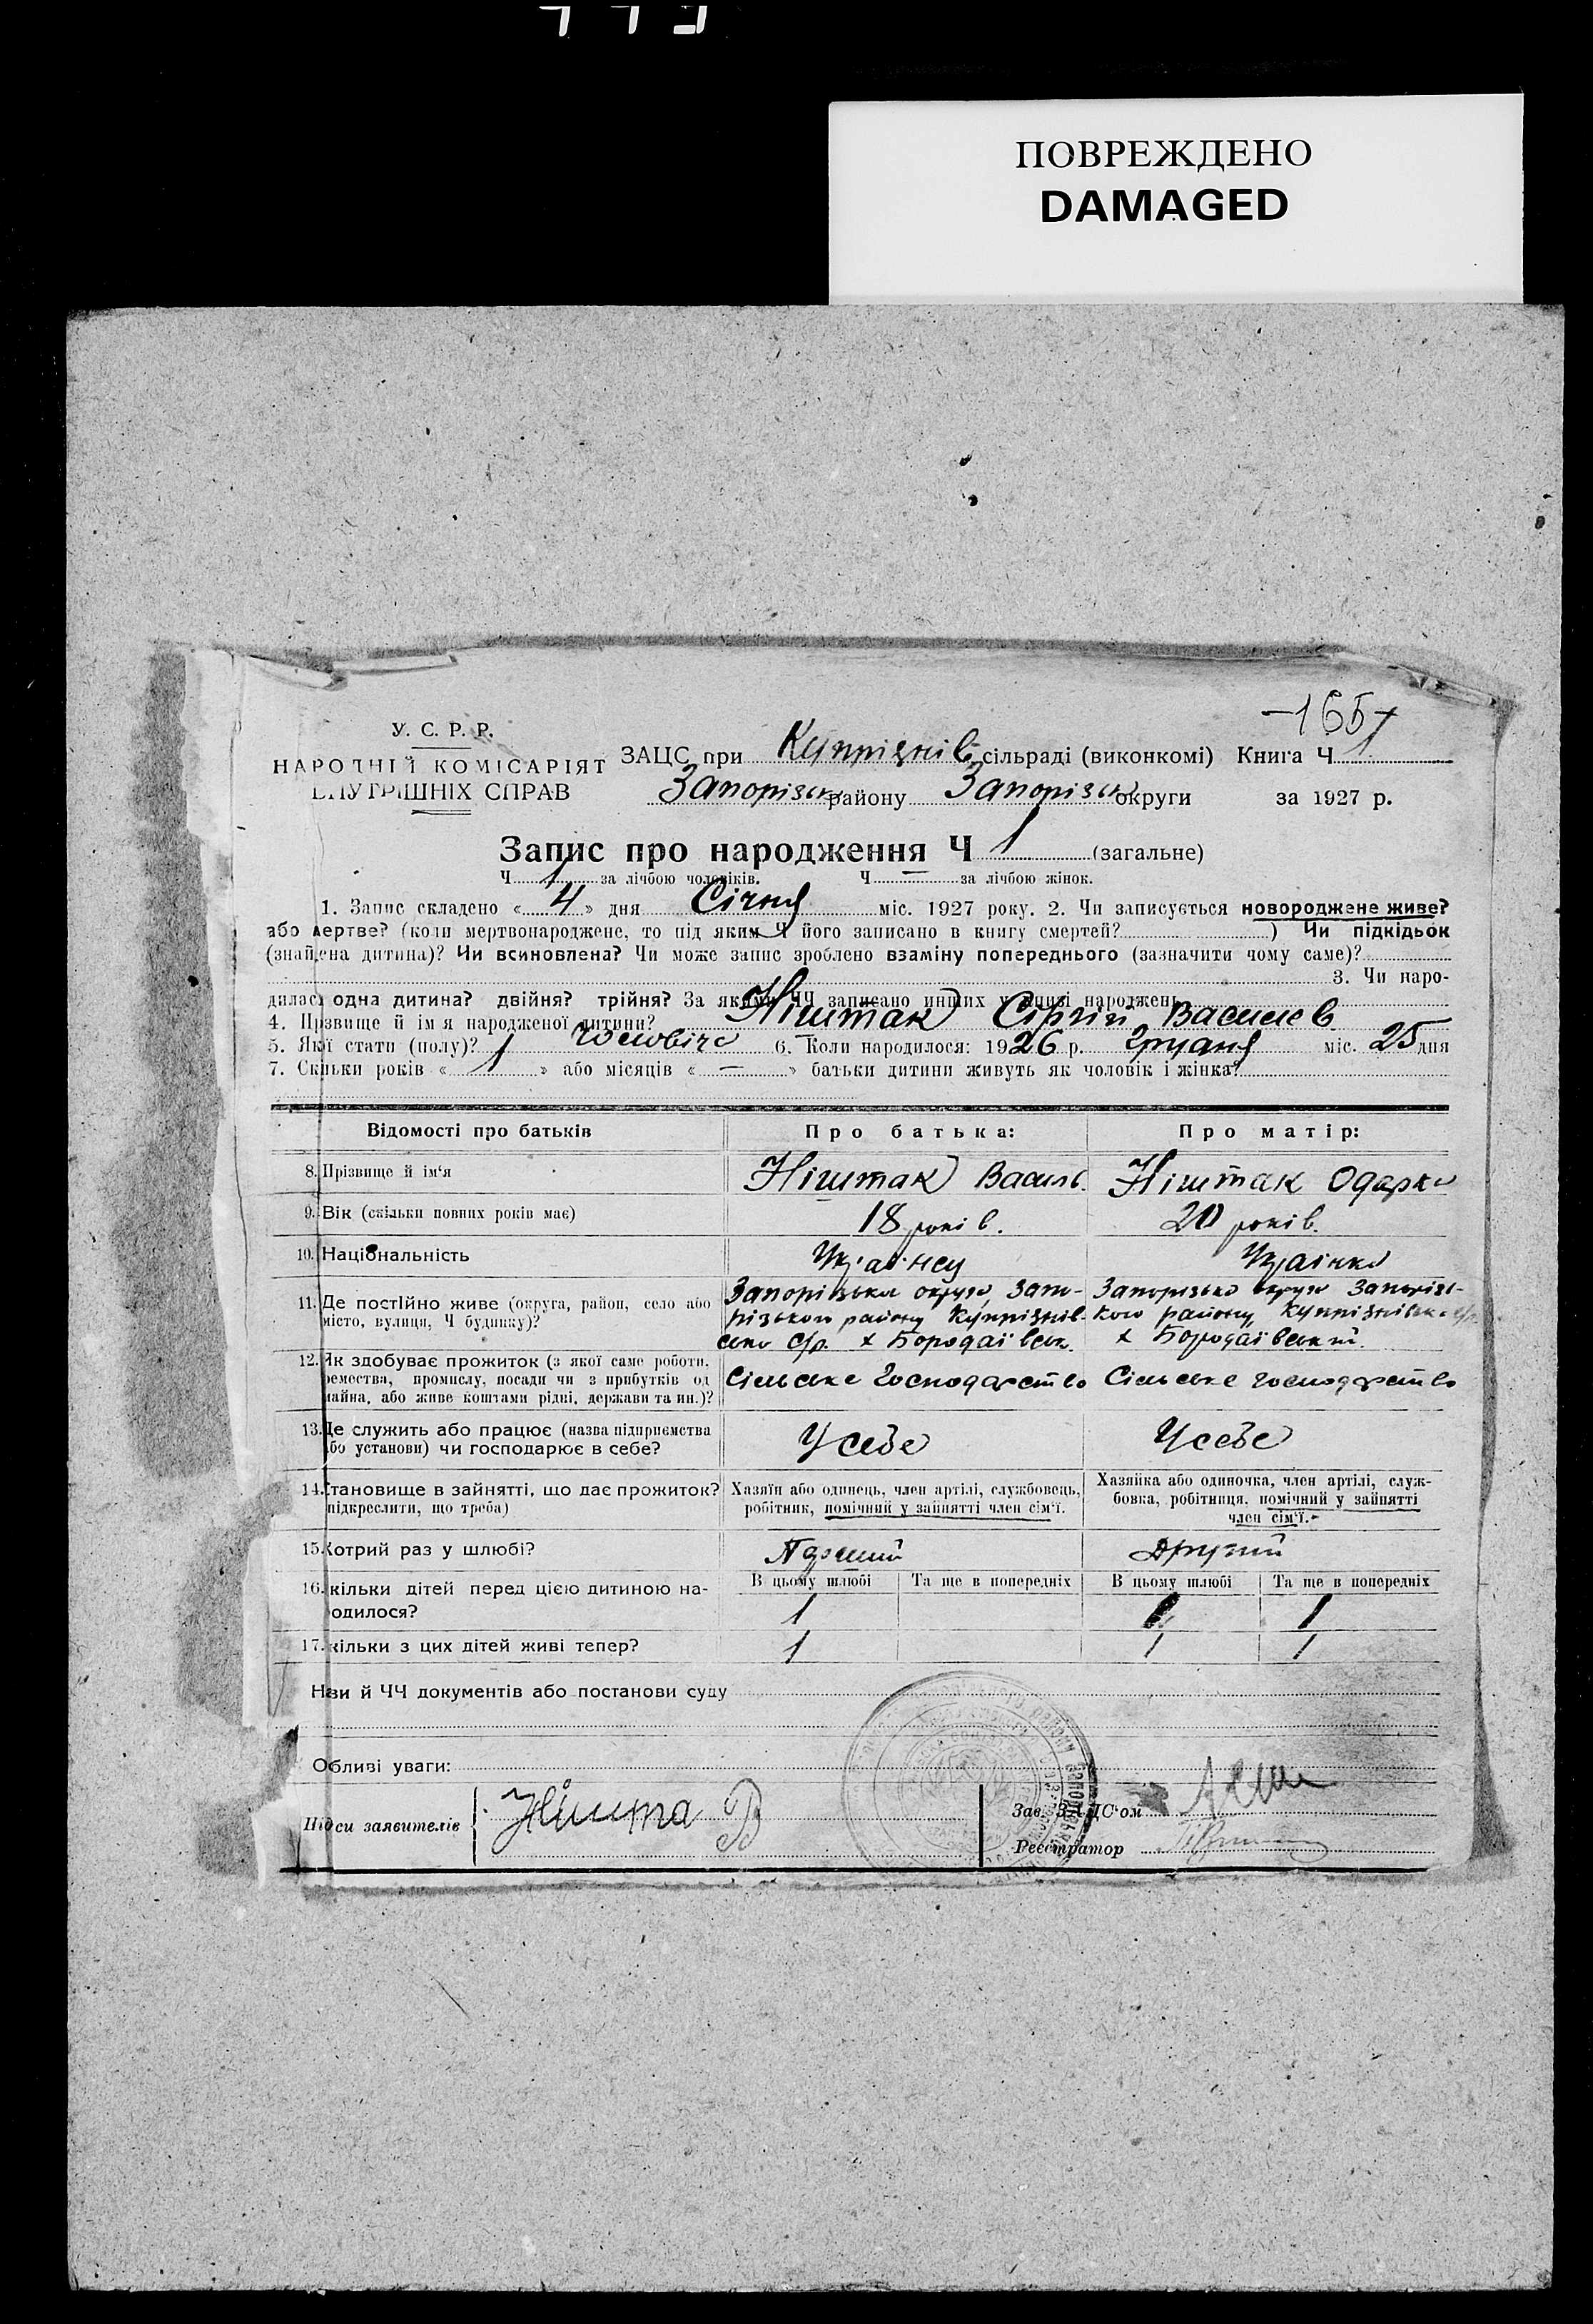 ПОВРЕЖДЕНО
DAMAGED
-165-
У. С. Р. Р.
НАРОДНІЙ КОМІСАРІЯТ
ВНУТРІШНІХ СПРАВ
ЗАЦС при Купрізнів сільраді (виконкомі) Книга Ч 1
Запорізьк району Запорізьк округи за 1927 р.
Запис про народження Ч 1 (загальне)
Ч 1 за лічбою чоловіків. Ч — за лічбою жінок.
1. Запис складено « 4 » дня Січня міс. 1927 року. 2. Чи записується новороджене живе?
або мертве? (коли мертвонароджене, то під яким Ч його записано в книгу смертей? ) Чи підкідьок
(знайдена дитина)? Чи всиновлена? Чи може запис зроблено взаміну попереднього (зазначити чому саме)?
3. Чи наро-
дилась одна дитина? двійня? трійня? За якими ЧЧ записано инших у книзі народжень
4. Прзвище й імя народженої дитини? Ніштак Сіргій Васильев
5. Якої стати (полу)? 1 чоловіча 6. Коли народилося: 1926 р. Грудня міс. 25 дня
7. Скільки років « 1 » або місяців « — » батьки дитини живуть як чоловік і жінка?
Відомості про батьків Про батька: Про матір:
8. Прізвище й ім'я Ніштак Василь. Ніштак Одарка
9. Вік (скільки повних років має) 18 років. 20 років.
10. Національність Українец Українка
11. Де постійно живе (округа, район, село або місто, вулиця, Ч будинку)?
Запорізька округа, Запо-
різького району Купрізнів-
ська с/р. х Бородаївськ.
Запорізька округа Запорізь-
кого району Купрізнівська с/р.
х Бородаївський.
12. Як здобуває прожиток (з якої саме роботи,
ремества, промислу, посади чи з прибутків од
майна, або живе коштами рідні, держави та ин.)?
Сільське Господарство Сільське господарство
13. Де служить або працює (назва підприємства
або установи) чи господарює в себе?
У себе У себе
14. Становище в зайнятті, що дає прожиток?
(підкреслити, що треба)
Хазяїн або одинець, член артілі, службовець,
робітник, помічний у зайнятті член сім'ї.
Хазяйка або одиночка, член артілі, служ-
бовка, робітниця, помічний у зайнятті
член сім'ї.
15. Котрий раз у шлюбі? Перший Другий
16. кільки дітей перед цією дитиною на-
одилося?
В цьому шлюбі Та ще в попередніх В цьому шлюбі Та ще в попередніх
1 1 1
17. кільки з цих дітей живі тепер? 1 1 1
Нази й ЧЧ документів або постанови суду
Обливі уваги:
Підси заявителів Ніишта В
Зав. ЗАЦС'ом
Реєстратор